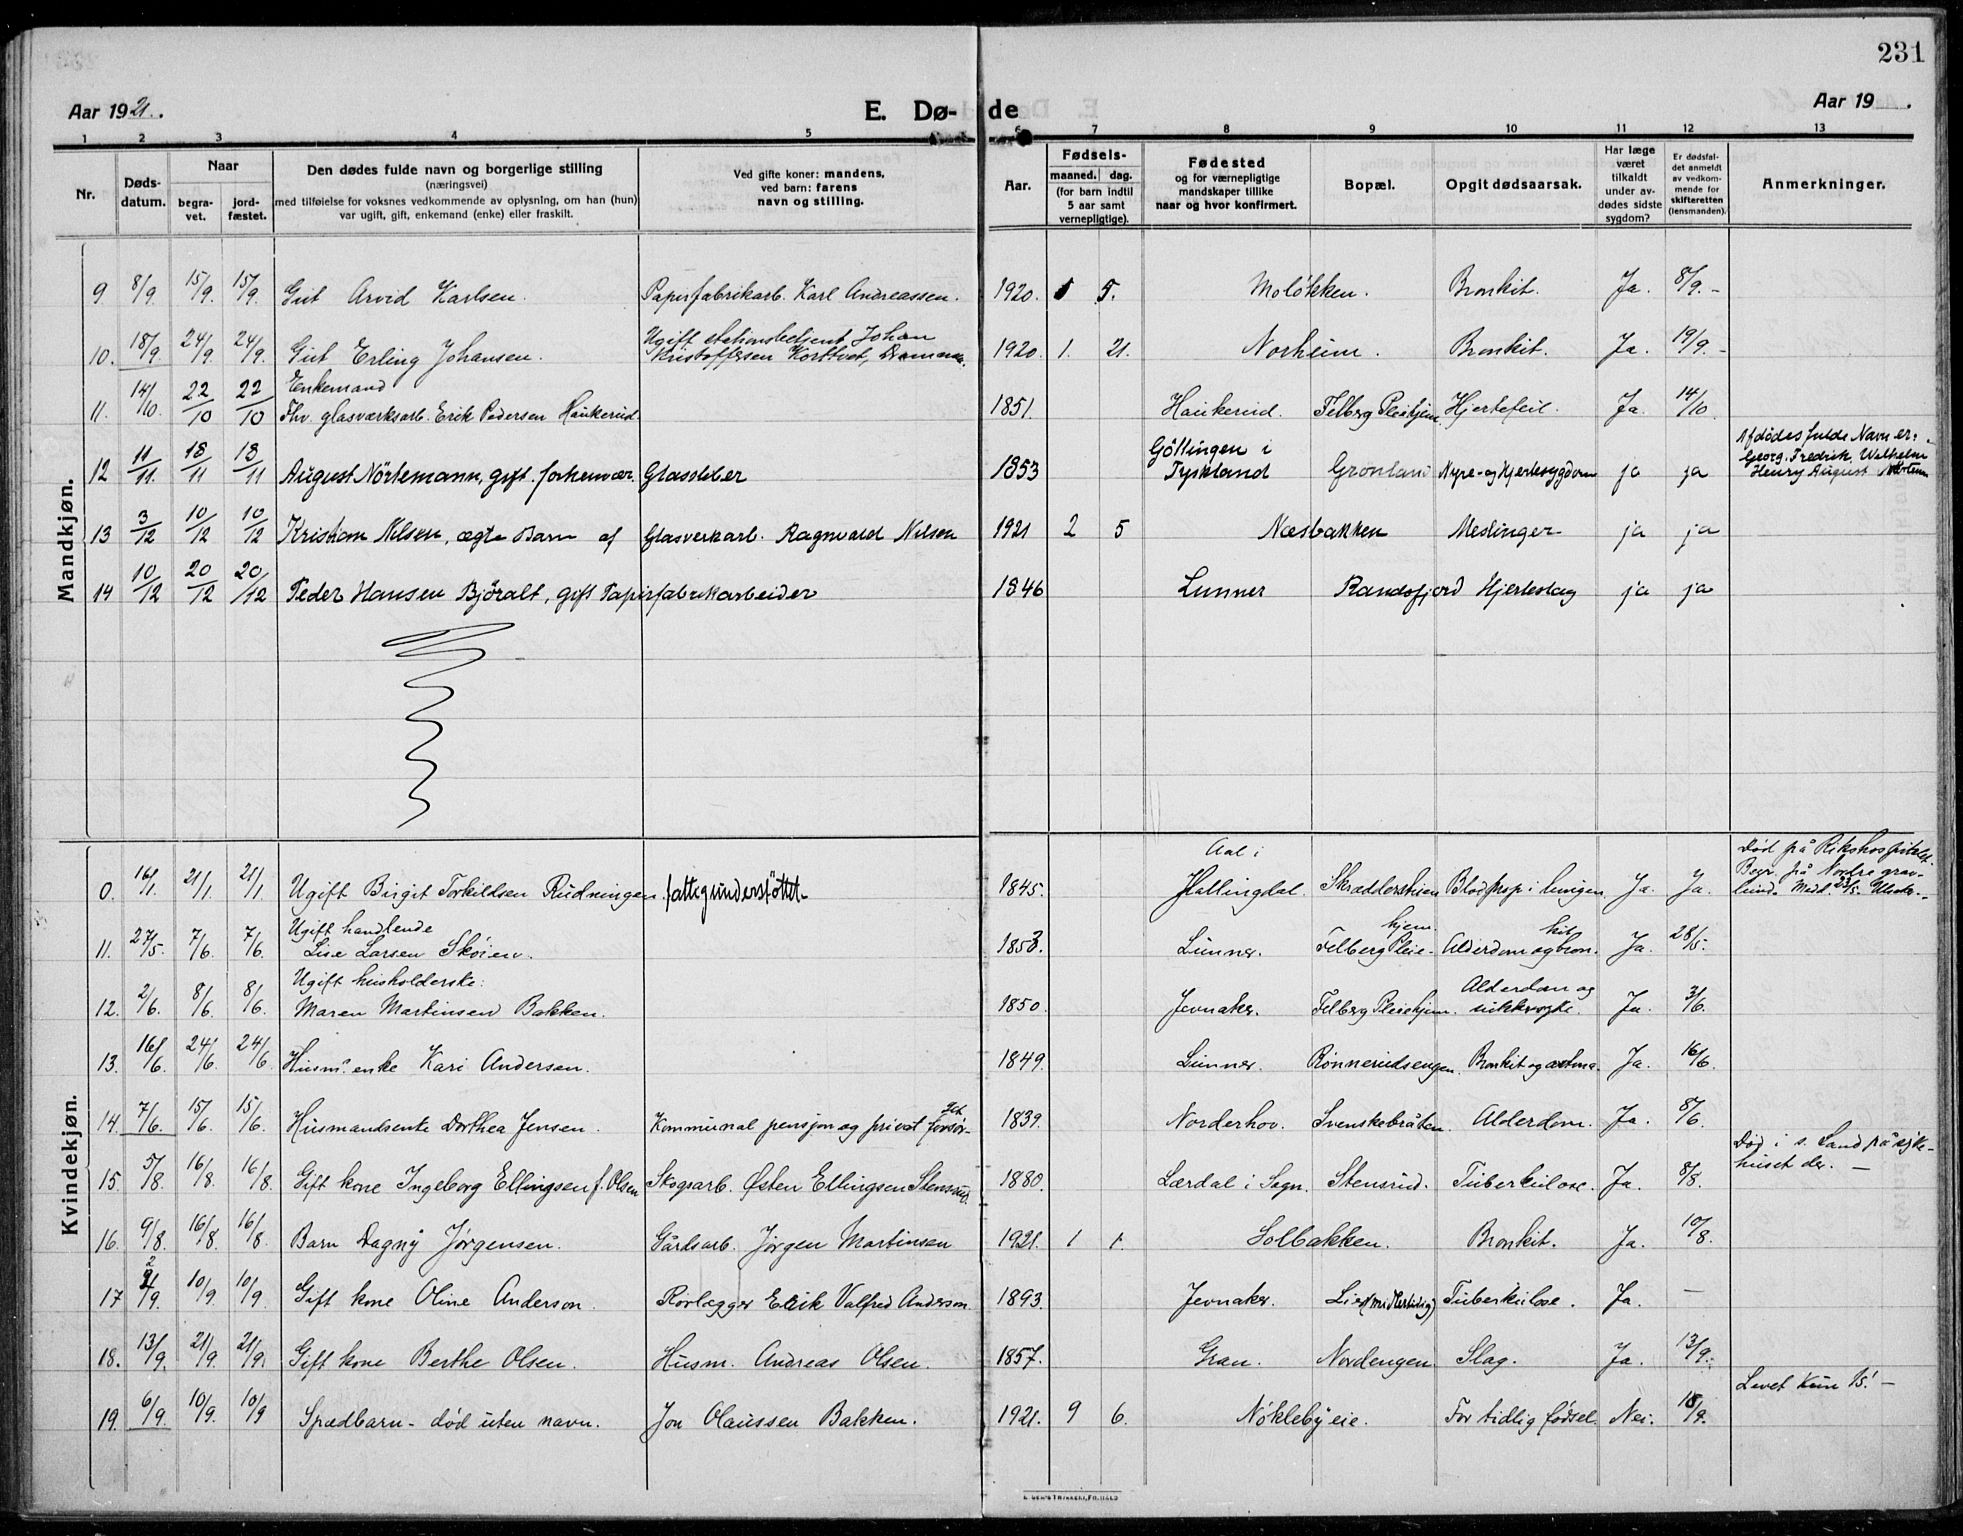 231
Aar 1921.
E. Dø-
de
Aar 19 .
1 2 3 4 5 6 7 8 9 10 11 12 13
Nr.
Døds-
datum.
Naar
begra-
vet.
jord-
fæstet.
Den dødes fulde navn og borgerlige stilling
(næringsvei)
med tilføielse for voksnes vedkommende av oplysning, om han (hun)
var ugift, gift, enkemand (enke) eller fraskilt.
Ved gifte koner: mandens,
ved barn: farens
navn og stilling.
Aar.
Fødsels-
maaned. dag.
(for barn indtil
5 aar samt
vernepligtige).
Fødested
og for værnepligtige
mandskaper tillike
naar og hvor konfirmert.
Bopæl.
Opgit dødsaarsak.
Har læge
været
tilkaldt
under av-
dødes sidste
sygdom?
Er dødsfal-
det anmeldt
av vedkom-
mende for
skifteretten
(lensmanden).
Anmerkninger.
Mandkjøn.
9 8/9. 15/9. 15/9. Gut Arvid Karlsen. Papirfabrikarb. Karl Andreassen. 1920. 5. Moløkken. Bronkit. Ja. 8/9.-
Ugift stationsbetjent Johan
10. 18/9. 24/9. 24/9. Gut Erling Johansen. Kristoffersen 1920. 1. 21. Norheim. Bronkit. Ja. 19/9.-
Enkemand
11. 14/10. 22/10 22/10 Fhv. glasværksarb. Erik Pedersen Haukerud 1851. Haukerud. Felberg Pleiehjem. Hjertefeil. Ja. 14/10.
Göttingen i
Afdødes fulde Navn er:
Georg, Fredrik, Wilhelm
12 11/11. 18/11 18/11 August Nörtemann, gift. forhenvær. Glassliber 1853 Tyskland Grønland Nyre- og Hjertesygdom ja ja Henry August
13 3/12 10/12 10/12 Kristian Nilsen, ægte Barn af Glasverkarb. Ragnvald Nilsen 1921 2 5 Næsbakken Meslinger ja ja
14 10/12 20/12 20/12 Peder Hansen Bjøralt, gift Papirfabrikarbeider 1846 Lunner Randsfjord Hjerteslag ja ja
Kvindekjøn.
Aal i
Død på Rikshospitalet.
Begr. på Nordre grav-
0. 16/1. 21/1 21/1 Ugift Birgit Torkildsen Rudningen. fattigunderstøttet- 1845. Hallingdal Blodprop i lungen Ja. Ja. lund. Med.
Ugift handlende
hjem. kit
11. 27/5. 7/6. 7/6. Lise Larsen Skøien. 1853. Lunner. Felberg Pleie- Alderdom og bron. Ja. 28/5.
Ugift husholderske:
Alderdom og
12. 2/6. 8/6. 8/6. Maren Martinsen Bakken. 1850. Jevnaker. Felberg Pleiehjem. sukkersyke. Ja. 3/6.
13. 16/6. 24/6. 24/6. Husm. enke Kari Andersen. 1849. Lunner. Rønnerudsengen. Bronkit og astma. Ja. 16/6.
get
14. 7/6. 15/6. 15/6. Husmandsenke Dorthea Jensen. Kommunal pensjon og privat forsør- 1839. Norderhov. Svenskebråten. Alderdom. Ja. 8/6.
Død i s. Land på syke-
huset der. -
15. 5/8. 16/8. 16/8. Gift kone Ingeborg Ellingsen f. Olsen Skogsarb. Østen Ellingsen Stensrud. 1880. Lærdal i Sogn. Stensrud. Tuberkulose. Ja. 8/8.
16. 9/8. 16/8. 16/8. Barn Dagny Jørgensen. Gårdsarb. Jørgen Martinsen 1921. 1 1. Solbakken. Bronkit. Ja. 10/8.
17 2/9. 10/9. 10/9. Gift kone Oline Anderson. Rørlægger Erik Valfred Anderson 1893. Jevnaker. Lier (midlertidig) Tuberkulose. Ja. -
18. 13/9. 21/9. 21/9. Gift kone Berthe Olsen. Husm. Andreas Olsen. 1857. Gran. Nordengen. Slag. Ja. 13/9.
Levet kun 15! -
19. 6/9. 10/9. 10/9 Spædbarn - død uten navn. Jon Olaussen Bakken. 1921. 9 6. Nøklebyeie. For tidlig fødsel. Nei. 18/9.